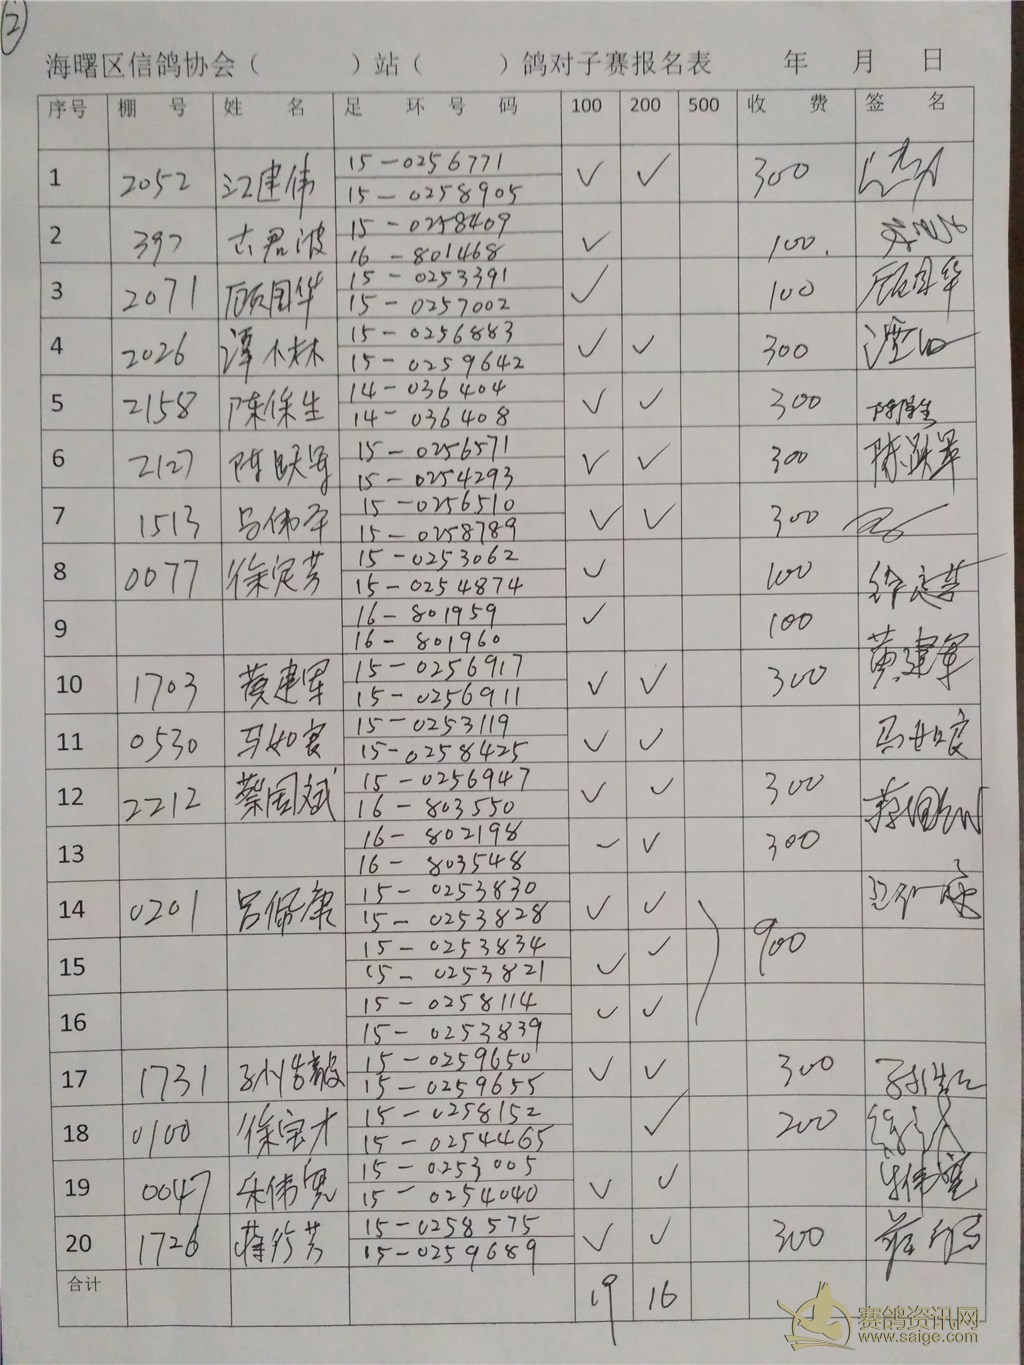 2
海曙区信鸽协会（ ）站（ ）鸽对子赛报名表 年 月 日
序号 棚 号 姓 名 足 环 号 码 100 200 500 收 费 签 名
1 2052 江建伟 15-0256771 ✓ ✓ 300
15-0258905
2 397 君波 15-0258409 ✓ 100.
16-801468
3 2071 顾国华 15-0253391 ✓ 100 顾国华
15-0257002
4 2026 潭小林 15-0256883 ✓ ✓ 300
15-0259642
5 2158 陈保生 14-036404 ✓ ✓ 300
14-036408
6 2127 陈跃军 15-0256571 ✓ ✓ 300 陈跃军
15-0254293
7 1513 吕伟 15-0256510 ✓ ✓ 300
15-0258789
8 0077 徐定芳 15-0253062 ✓ 100 徐定芳
15-0254874
9 16-801959 ✓ 100
16-801960
10 1703 黄建军 15-0256917 ✓ ✓ 300 黄建军
15-0256911
11 0530 马如良 15-0253119 ✓ ✓ 马如良
15-0258425
12 2212 蔡国斌 15-0256947 ✓ ✓ 300 蔡国斌
16-803550
13 16-802198 ✓ ✓ 300
16-803548
14 0201 吕保康 15-0253830 ✓ ✓ 900
15-0253828
15 15-0253834 ✓ ✓
15-0253821
16 15-0258114 ✓ ✓
15-0253839
17 1731 孙 15-0259650 ✓ ✓ 300
15-0259655
18 0100 徐宝才 15-0258152 ✓ 200
15-0254465
19 0047 朱伟宽 15-0253005 ✓ ✓ 朱伟宽
15-0254040
20 1726 蒋 芳 15-0258575 ✓ ✓ 300
15-0259689
合计 19 16
赛鸽资讯网
www.saige.com